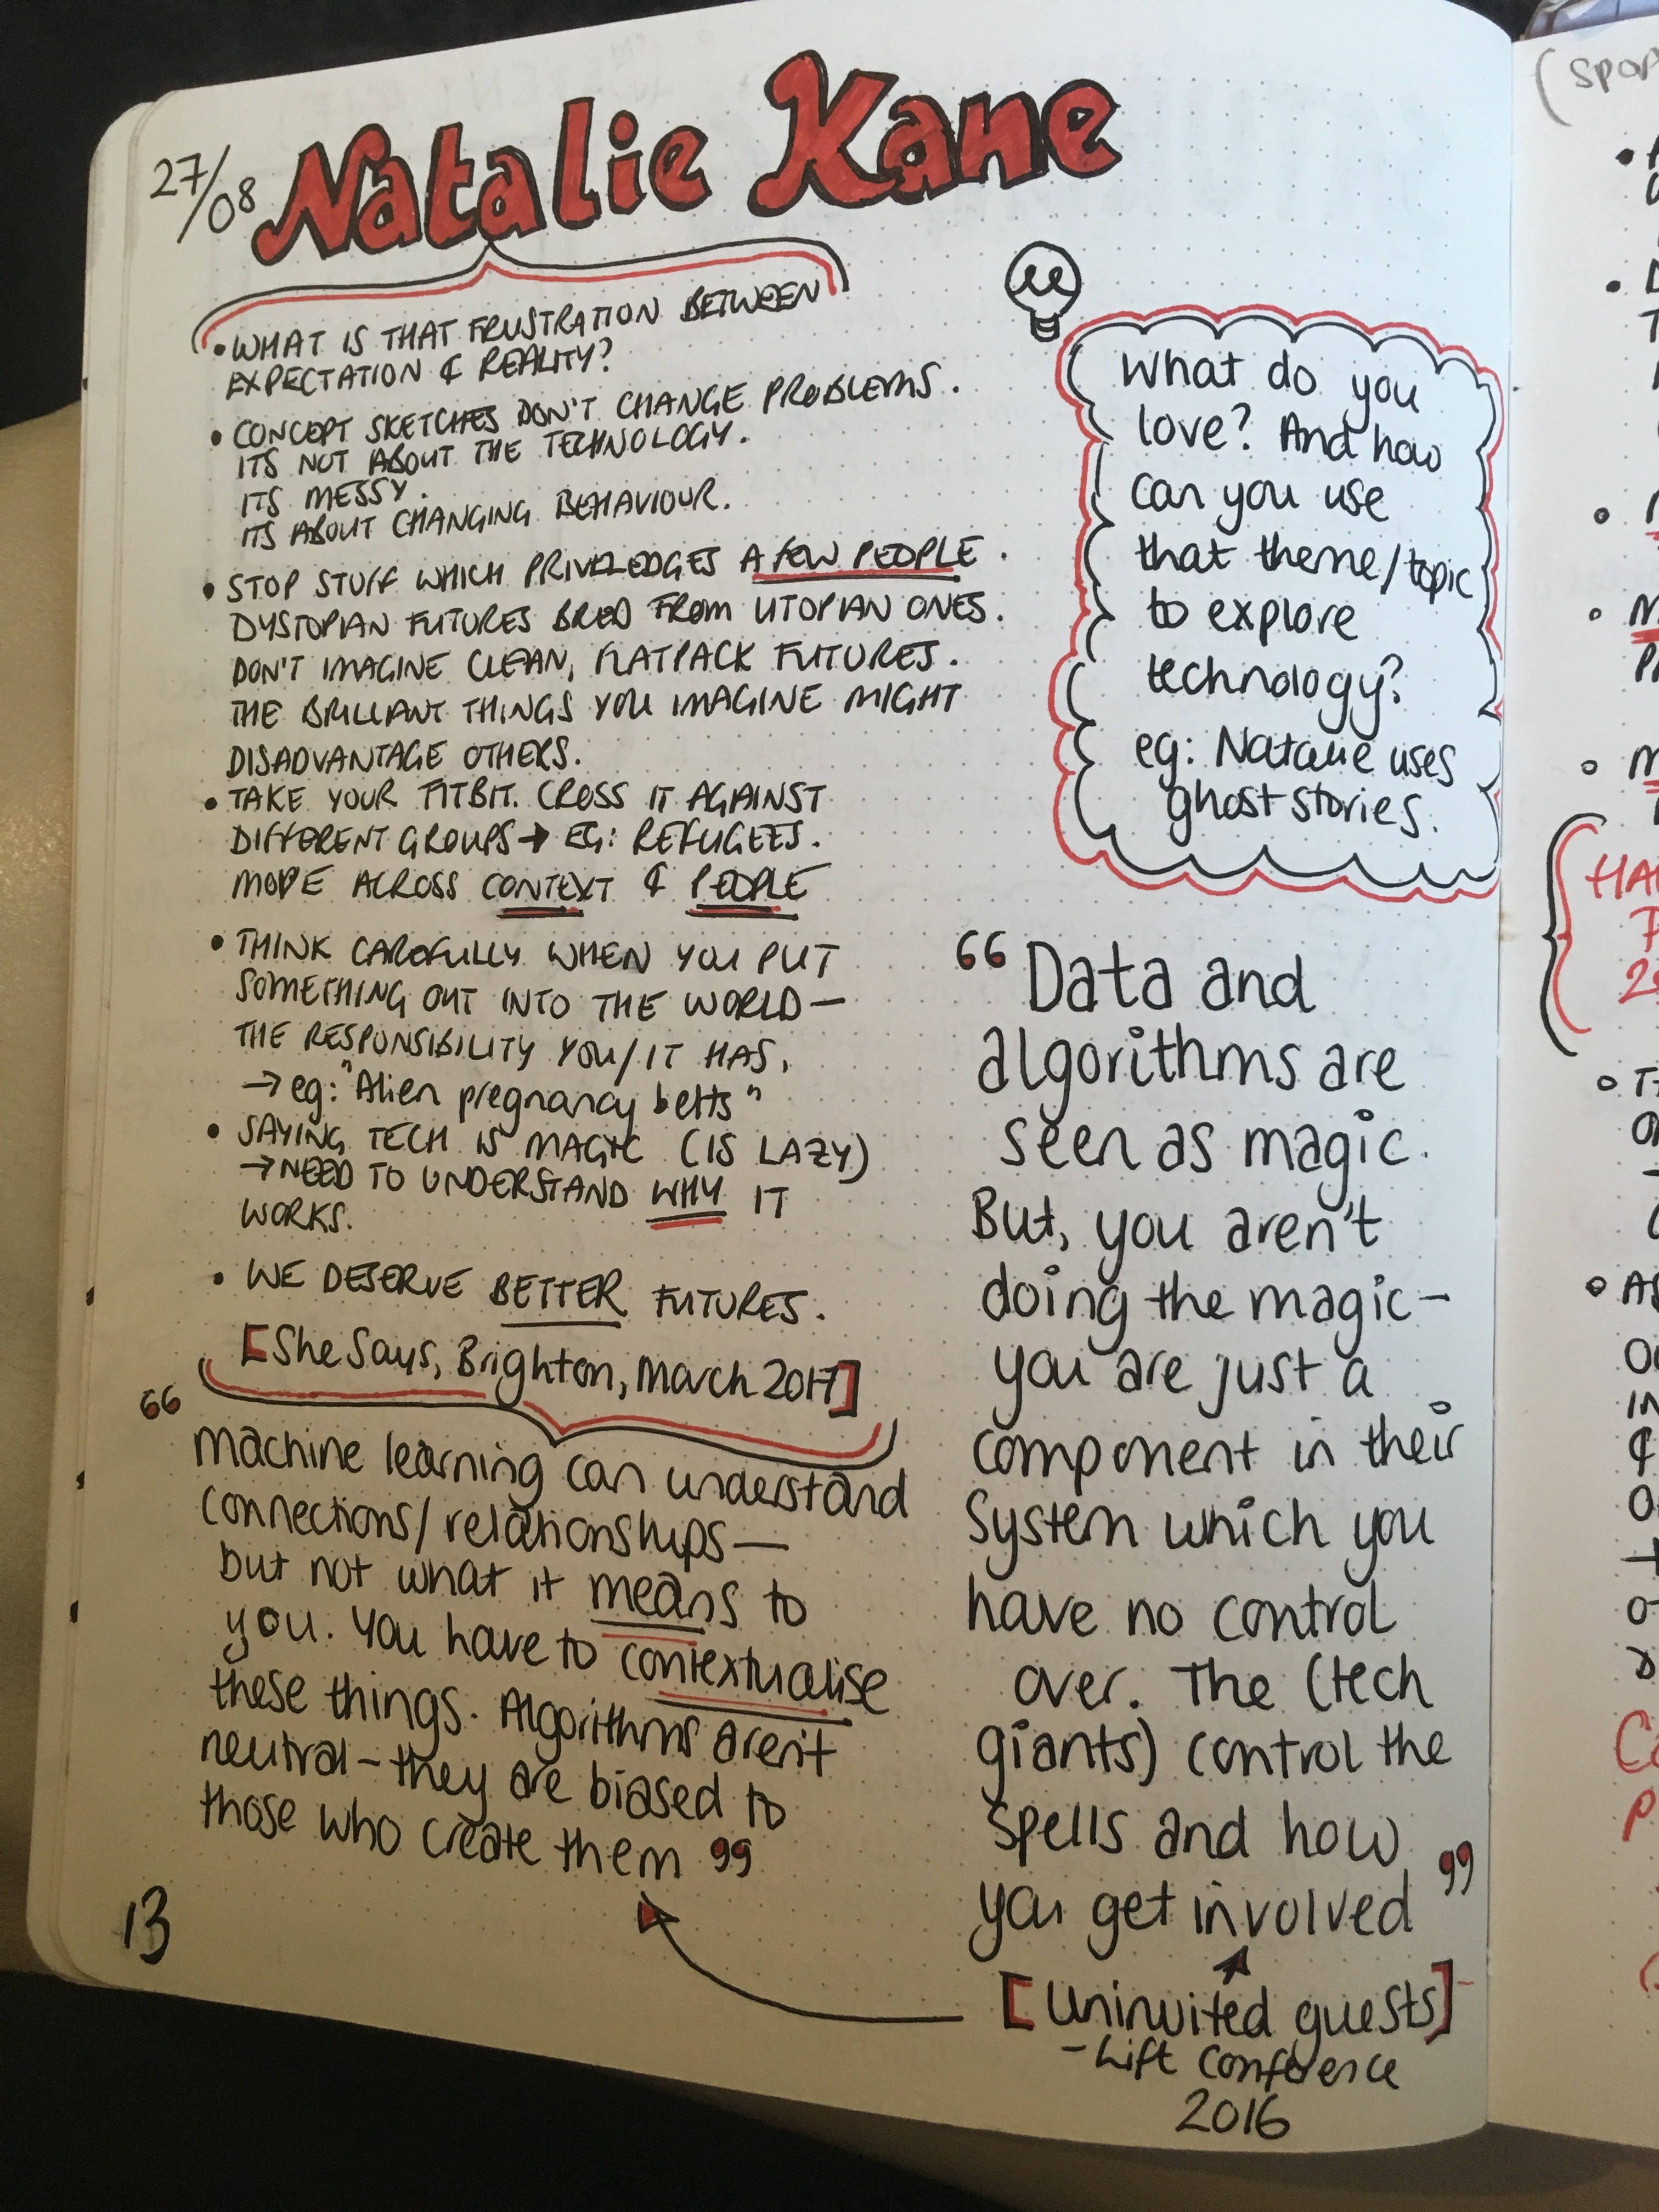 27/08 Natalie Kane
• WHAT IS THAT FRUSTRATION BETWEEN
EXPECTATION & REALITY?
• CONCEPT SKETCHES DON'T CHANGE PROBLEMS.
ITS NOT ABOUT THE TECHNOLOGY.
ITS MESSY.
ITS ABOUT CHANGING BEHAVIOUR.
• STOP STUFF WHICH PRIVELEDGES A FEW PEOPLE.
DYSTOPIAN FUTURES BRED FROM UTOPIAN ONES.
DON'T IMAGINE CLEAN, FLATPACK FUTURES.
THE BRILLIANT THINGS YOU IMAGINE MIGHT
DISADVANTAGE OTHERS.
• TAKE YOUR FITBIT. CROSS IT AGAINST
DIFFERENT GROUPS → EG: REFUGEES.
MOVE ACROSS CONTEXT & PEOPLE
• THINK CAREFULLY WHEN YOU PUT
SOMETHING OUT INTO THE WORLD —
THE RESPONSIBILITY YOU/IT HAS.
→ eg: "Alien pregnancy belts"
• SAYING TECH IS MAGIC (IS LAZY)
→ NEED TO UNDERSTAND WHY IT
WORKS.
• WE DESERVE BETTER FUTURES.
[SheSays, Brighton, March 2017]
“machine learning can understand
connections/relationships —
but not what it means to
you. You have to contextualise
these things. Algorithms aren't
neutral - they are biased to
those who create them”
13
What do you
love? And how
can you use
that theme/topic
to explore
technology?
eg: Natalie uses
ghost stories.
“Data and
algorithms are
seen as magic.
But, you aren't
doing the magic -
you are just a
component in their
system which you
have no control
over. The (tech
giants) control the
spells and how
you get involved”
[Uninvited guests]
- Lift Conference
2016